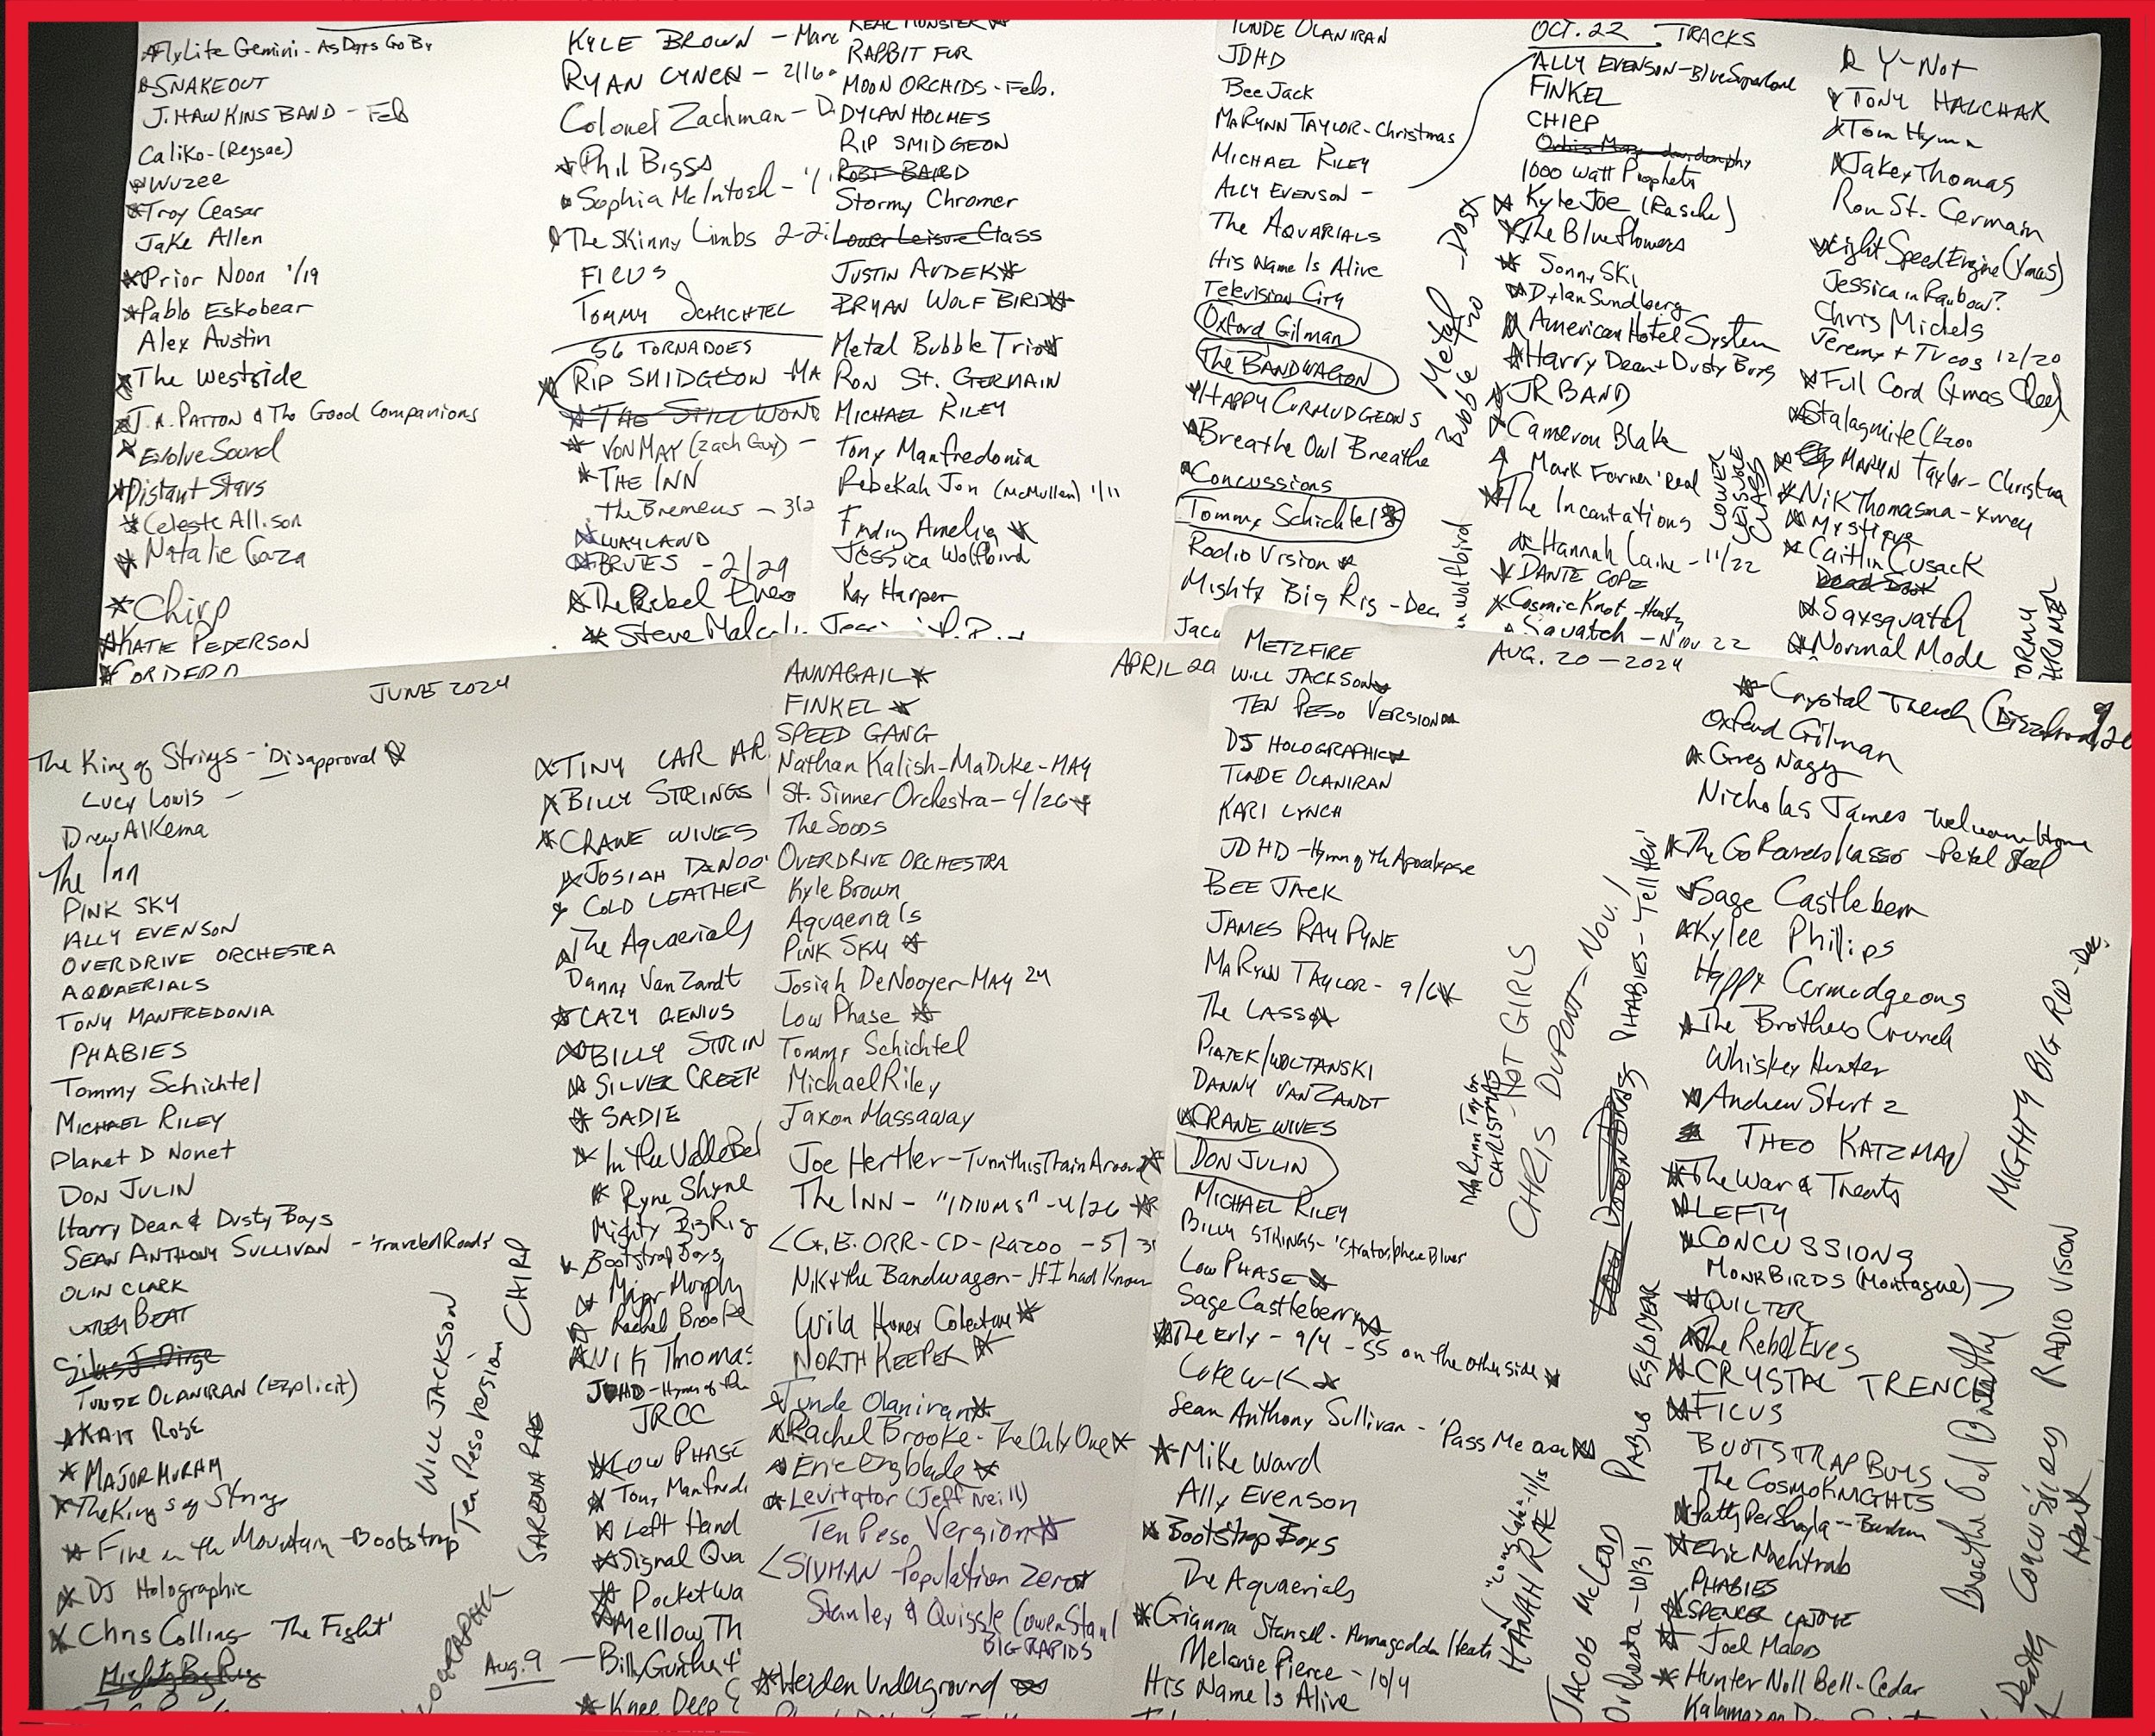 FlyLite Gemini - As Days Go By
SNAKEOUT
J. HAWKINS BAND - Feb
Caliko - (Reggae)
Wuzee
Troy Ceasar
Jake Allen
Prior Noon 1/19
Pablo Eskobear
Alex Austin
The Westside
J.R. PATTON & The Good Companions
Evolve Sound
Distant Stars
Celeste Allison
Natalie Gaza
Chirp
KATIE PEDERSON
CORDERO
KYLE BROWN - Marc
RYAN LYNCH - 2/16
Colonel Zachman - D
Phil Biggs
Sophia McIntosh - 1/
The Skinny Limbs 2-2
FICUS
TOMMY SCHICHTEL
56 TORNADOES
RIP SMIDGEON - MA
THE STILL WOND
VON MAY (Zach Guy) -
THE INN
The Bremeus - 3/2
WAYLAND
BRUTES - 2/29
The Rebel Eves
Steve Malcol
REAL MONSTER
RABBIT FUR
MOON ORCHIDS - Feb.
DYLAN HOLMES
RIP SMIDGEON
ROBT BAIRD
Stormy Chromer
Lower Leisure Class
JUSTIN AVDEK
BRYAN WOLF BIRD
Metal Bubble Trio
RON ST. GERMAIN
MICHAEL RILEY
Tony Manfredonia
Rebekah Jon (McMullen) 1/11
Emily Amelia
Jessica Wolfbird
Kay Harper
TUNDE OLANIRAN
JDHD
Bee Jack
MARYNN TAYLOR - Christmas
MICHAEL RILEY
ALLY EVENSON -
The AQUARIALS
His Name Is Alive
Television City
Oxford Gilman
The BANDWAGON
HAPPY CURMUDGEONS
Breathe Owl Breathe
Concussions
Tommy Schichtel
Radio Vision
Mighty Big Rig - Dec.
Metal Bubble Trio - Dost
OCT. 22 TRACKS
ALLY EVENSON - Blue Superlove
FINKEL
CHIRP
1000 Watt Prophets
Kyle Joe (Rasche)
The Blueflowers
Sonny Ski
Dylan Sundberg
American Hotel System
Harry Dean + Dusty Boys
JR BAND
Cameron Blake
Mark Farner 'Real
The Incantations
Hannah Laine - 11/22
DANTE COPE
Cosmic Knot - Heavy
Savatch - Nov 22
LOWER LEISURE CLASS
Y-Not
TONY HALCHAK
Tom Hymn
Jake + Thomas
Ron St. Germain
Light Speed Engine (Xmas)
Jessica in Rainbow?
Chris Michels
Jeremy + Tucos 12/20
Full Cord (Xmas Cheer)
Stalagmite (Kzoo
MARYN Taylor - Christma
Nik Thomasma - Xmey
Mystique
Caitlin Cusack
Saxsquatch
Normal Mode
STORMY CHROMER
JUNE 2024
The King of Strings - 'Disapproval
Lucy Louis -
Drew Alkema
The Inn
PINK SKY
ALLY EVENSON
OVERDRIVE ORCHESTRA
AQUAERIALS
TONY MANFREDONIA
PHABIES
Tommy Schichtel
MICHAEL RILEY
Planet D Nonet
DON JULIN
Harry Dean & Dusty Boys
SEAN ANTHONY SULLIVAN - 'Traveled Roads'
OLIN CLARK
GREY BEAT
Silas J. Dirge
TUNDE OLANIRAN (Explicit)
KAIT ROSE
MAJOR MURPHY
The Kings of Strings
Fire in the Mountain - Bootstrap
DJ Holographic
Chris Collins 'The Fight'
Mighty Big Rig
WILL JACKSON
Ten Peso Version
CHIRP
SARENA RAE
HOLOGRAPHIC
Aug. 9
TINY CAR AR
BILLY STRINGS
CRANE WIVES
JOSIAH DeNOO
COLD LEATHER
The Aquaerials
Danny VanZandt
CAZY GENIUS
BILLY STRIN
SILVER CREEK
SADIE
In the Valle Bel
Ryne Shyne
Mighty Big Rig
Bootstrap Boys
Major Murphy
Rachel Brooke
NIK Thomas
JDHD - Hymn of the
JRCC
LOW PHASE
Tony Manfredi
Left Hand
Signal Qua
Pocket Wa
Mellow Th
Billy Gunther &
Knee Deep
APRIL 20
ANNAGAIL
FINKEL
SPEED GANG
Nathan Kalish - MaDuke - MAY
St. Sinner Orchestra - 4/26
The Soods
OVERDRIVE ORCHESTRA
Kyle Brown
Aquaerials
PINK SKY
Josiah DeNooyer - MAY 24
Low Phase
Tommy Schichtel
Michael Riley
Jaxon Massaway
Joe Hertler - Turn this Train Around
The INN - "IDIUMS" - 4/26
G.E. ORR - CD - Kazoo - 5/3
Nik & the Bandwagon - If I had Know
Wild Honey Colective
NORTH KEEPER
Tunde Olaniran
Rachel Brooke - The Only One
Eric Engblade
Levitator (Jeff Neill)
Ten Peso Version
SIVMAN - Population Zero
Stanley & Quiggle (Owen Stanl
BIG RAPIDS
Heiden Underground
AUG. 20 - 2024
METZFIRE
WILL JACKSON
TEN PESO VERSION
DJ HOLOGRAPHIC
TUNDE OLANIRAN
KARI LYNCH
JDHD - Hymn of the Apocalypse
BEE JACK
JAMES RAY PYNE
MARYNN TAYLOR - 9/6
The LASSO
PIATEK/WOLTANSKI
DANNY VANZANDT
CRANE WIVES
DON JULIN
MICHAEL RILEY
BILLY STRINGS - 'Stratosphere Blues'
LOW PHASE
Sage Castleberry
The Erly - 9/4 - SS on the other side
Luke W-K
Sean Anthony Sullivan - 'Pass Me
Mike Ward
Ally Evenson
Bootstrap Boys
The Aquaerials
Gianna Stansell - Armageddon Heats
Melanie Pierce - 10/4
His Name Is Alive
MaRynn Taylor CHRISTMAS
HOT GIRLS
CHRIS DUPONT - Nov. 1
PHABIES - Tell Her
PABLO ESKOBEAR
"Long Lake" - 11/15
HANNAH RAE
JACOB McLEOD
Orchesta - 10/31
Crystal Trench (
Oxford Gilman
Greg Nagy
Nicholas James - Welcome Home
The Go Rounds/Lasso - Petal Steel
Sage Castleberr
Kylee Phillips
Happy Curmudgeons
The Brothers Crunch
Whiskey Hunter
Andrew Start 2
THEO KATZMAN
The War & Treaty
LEFTY
CONCUSSIONS
MONKBIRDS (Montague)
QUILTER
The Rebel Eves
CRYSTAL TRENCH
FICUS
BOOTSTRAP BOYS
The COSMOKNIGHTS
Patty PerShayla - Bantam
Eric Machtrab
PHABIES
SPENCER LAJOYE
Joel Mabus
Hunter Noll Bell - Cedar
Kalamazoo
MIGHTY BIG RIG - Dec.
RADIO VISION
Breathe Owl Breathe
Concussions